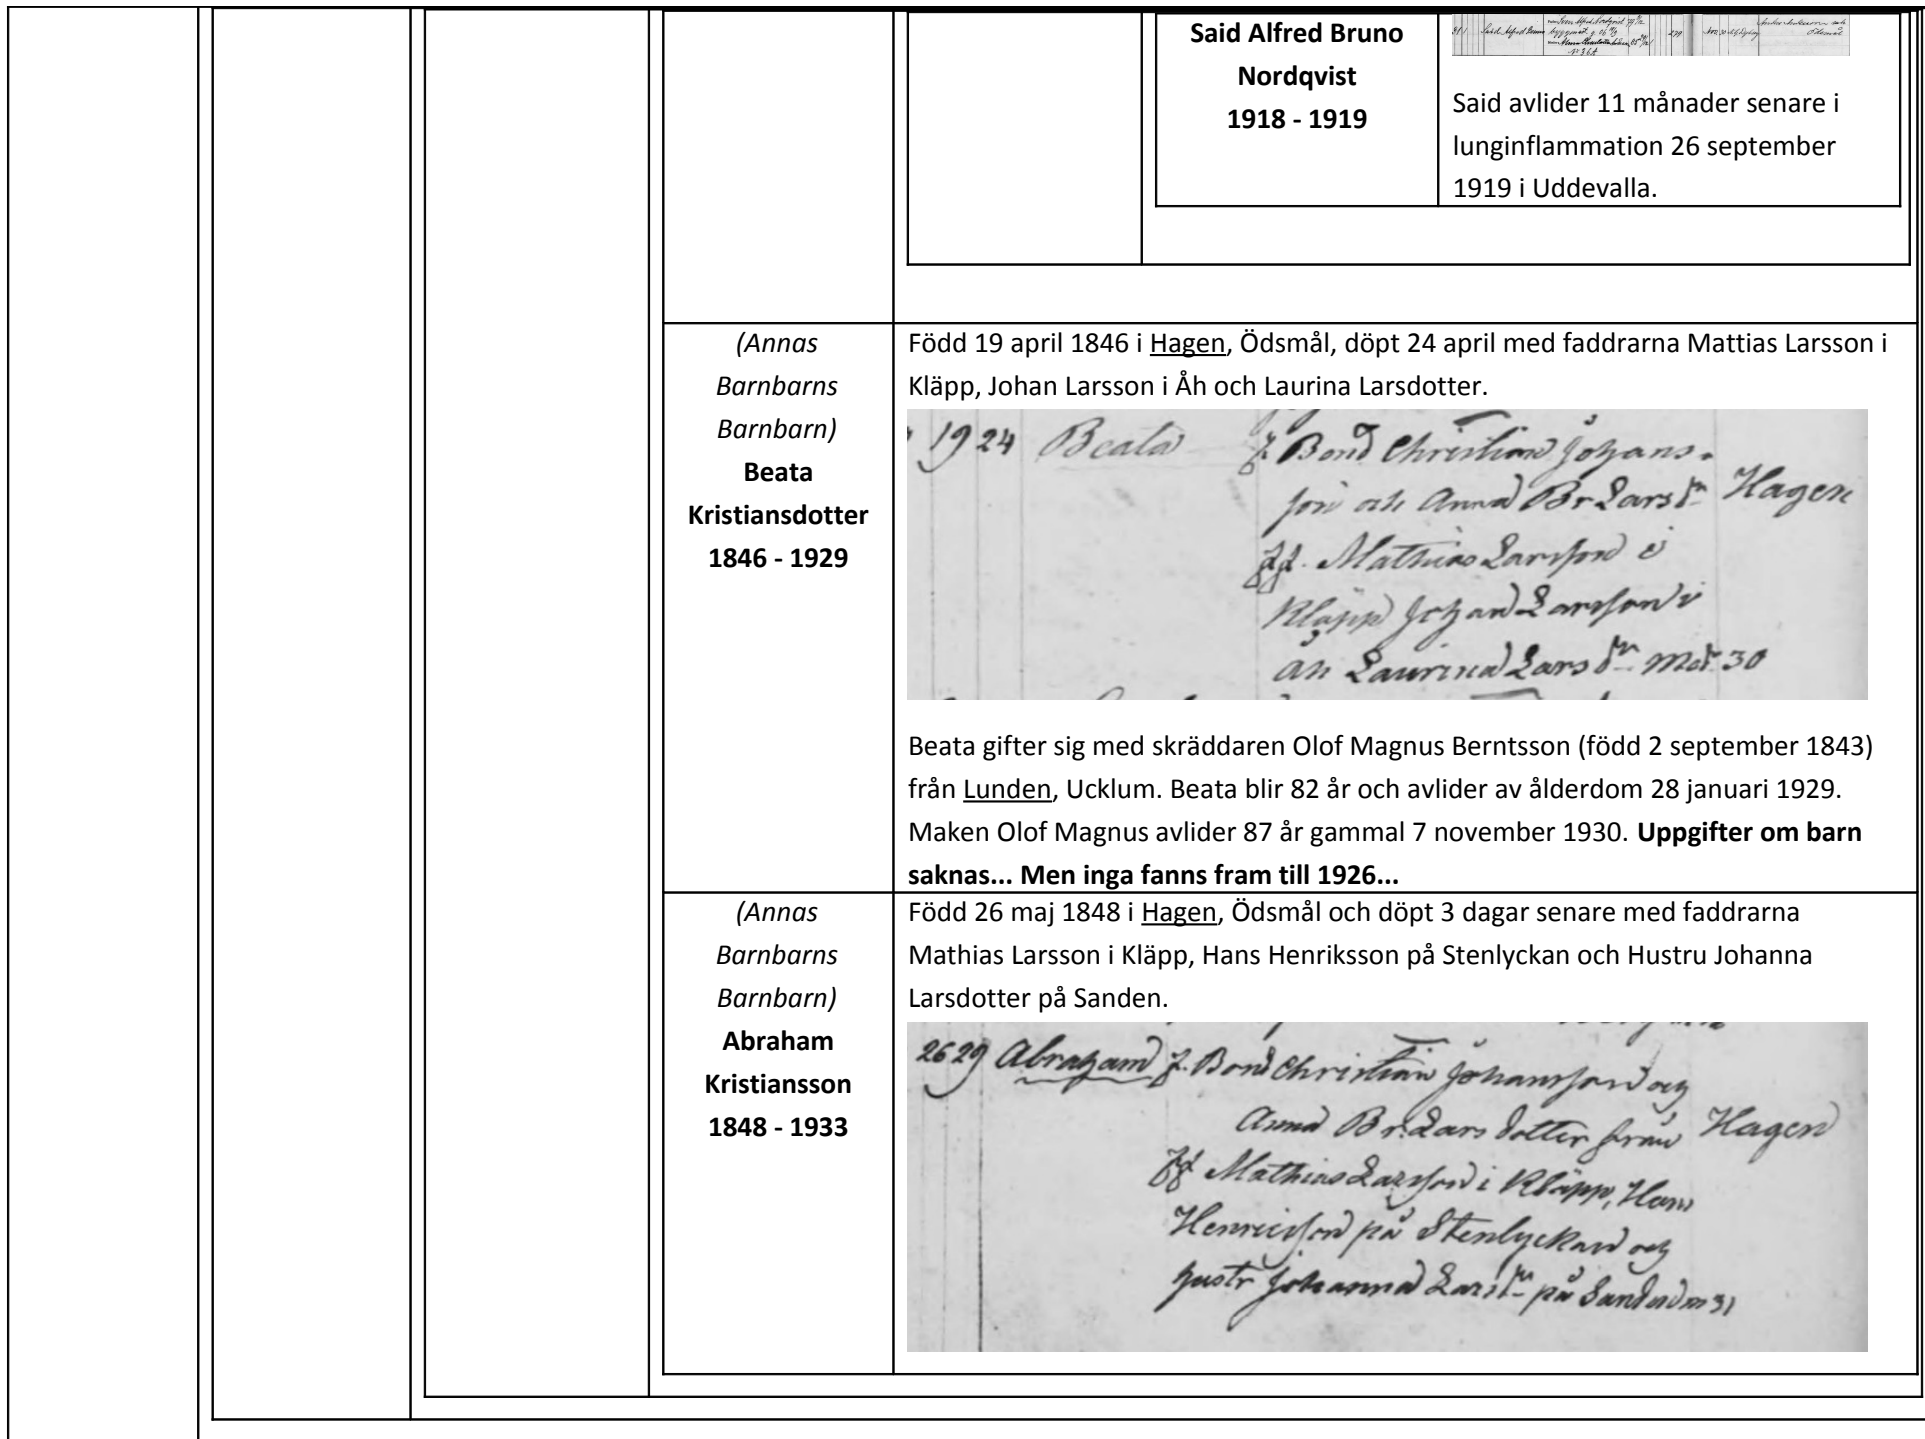 Said Alfred Bruno
Nordqvist
1918 - 1919
Said Alfred Bruno
Said avlider 11 månader senare i
lunginflammation 26 september
1919 i Uddevalla.
(Annas
Barnbarns
Barnbarn)
Beata
Kristiansdotter
1846 - 1929
Född 19 april 1846 i Hagen, Ödsmål, döpt 24 april med faddrarna Mattias Larsson i
Kläpp, Johan Larsson i Åh och Laurina Larsdotter.
19 24 Beata f. Bond Christian Johans-
son och Anna Br Larsdr Hagen
ff. Mathias Larsson i
Kläpp Johan Larsson i
Åh Laurina Larsdr Mod. 30
Beata gifter sig med skräddaren Olof Magnus Berntsson (född 2 september 1843)
från Lunden, Ucklum. Beata blir 82 år och avlider av ålderdom 28 januari 1929.
Maken Olof Magnus avlider 87 år gammal 7 november 1930. Uppgifter om barn
saknas... Men inga fanns fram till 1926...
(Annas
Barnbarns
Barnbarn)
Abraham
Kristiansson
1848 - 1933
Född 26 maj 1848 i Hagen, Ödsmål och döpt 3 dagar senare med faddrarna
Mathias Larsson i Kläpp, Hans Henriksson på Stenlyckan och Hustru Johanna
Larsdotter på Sanden.
26 29 Abraham f. Bond Christian Johansson och
Anna Br. Lars dotter från Hagen
ff Mathias Larsson i Kläpp, Hans
Henricsson på Stenlyckan och
hustr Johanna Larsdr på Sanden m 31